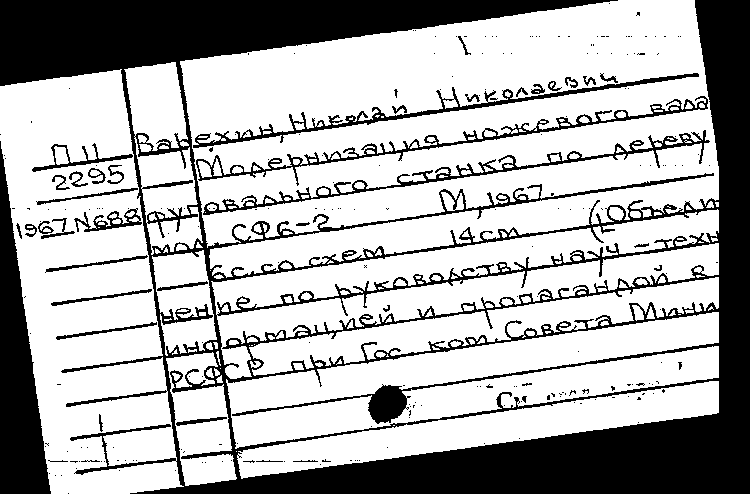 Варехин, Николай Николаевич
П 11 Модернизация ножевого вала
2295 фуговального станка по дереву
1967 N688 мод. СФ6-2. М, 1967.
6с. со схем. 14см (Объеди
нение по руководству науч-техн
информацией и пропагандой в
РСФСР при Гос. ком. Совета Мини
См